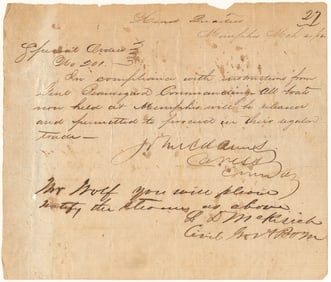 27
Head Quarters
Memphis Mch
Special Order
No 201.
In compliance with instructions from
Genl Beauregard Commanding All boats
now held at Memphis will be released
and permitted to proceed in their regular
trade —
Jn McAdams
Comdg
Mr Wolf you will please
notify the Steamers as above
L D McKissick
Civil Gov &